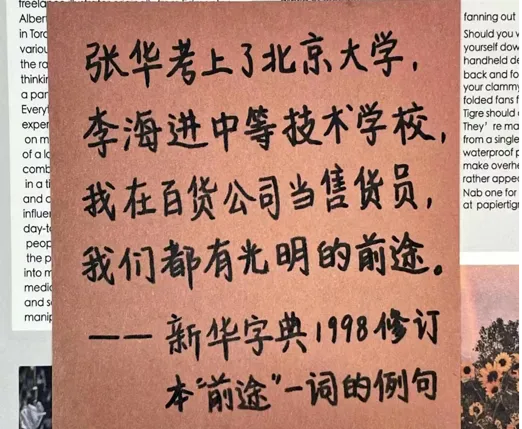 freelance
Albert
in Toro
variou
the ra
thinkin
a par
Everyt
exper
on m
of a lo
comb
in a ti
and c
influer
day-to
peop
the p
into m
medic
and s
manip
张华考上了北京大学，
李海进中等技术学校，
我在百货公司当售货员，
我们都有光明的前途。
——新华字典1998修订
本“前途”一词的例句
fanning out
Should you v
yourself dow
handheld de
back and fo
your clammy
folded fans f
Tigre should
They're ma
from a single
waterproof p
make overhe
rather appea
Nab one for
at papiertigr